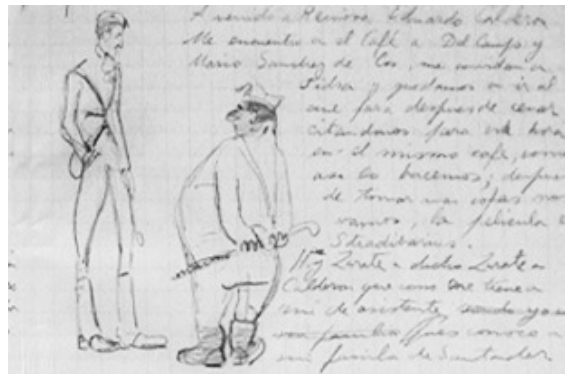 A venido a Reinosa Eduardo Calderon
Me encuentro en el Café a Del Campo y
Mario Sanchez de Cos, me convidan a
Sidra y quedamos en ir al
cine para despues de cenar
citandonos para esta hora
en el mismo cafe, como
asi lo hacemos; despues
de tomar unas copas nos
vamos, la pelicula es
Stradibarius.
Hoy Zarate a dicho Zarate a
Calderon que como ese tiene a
mi de asistente,
pues conoce a
mi familia de Santander